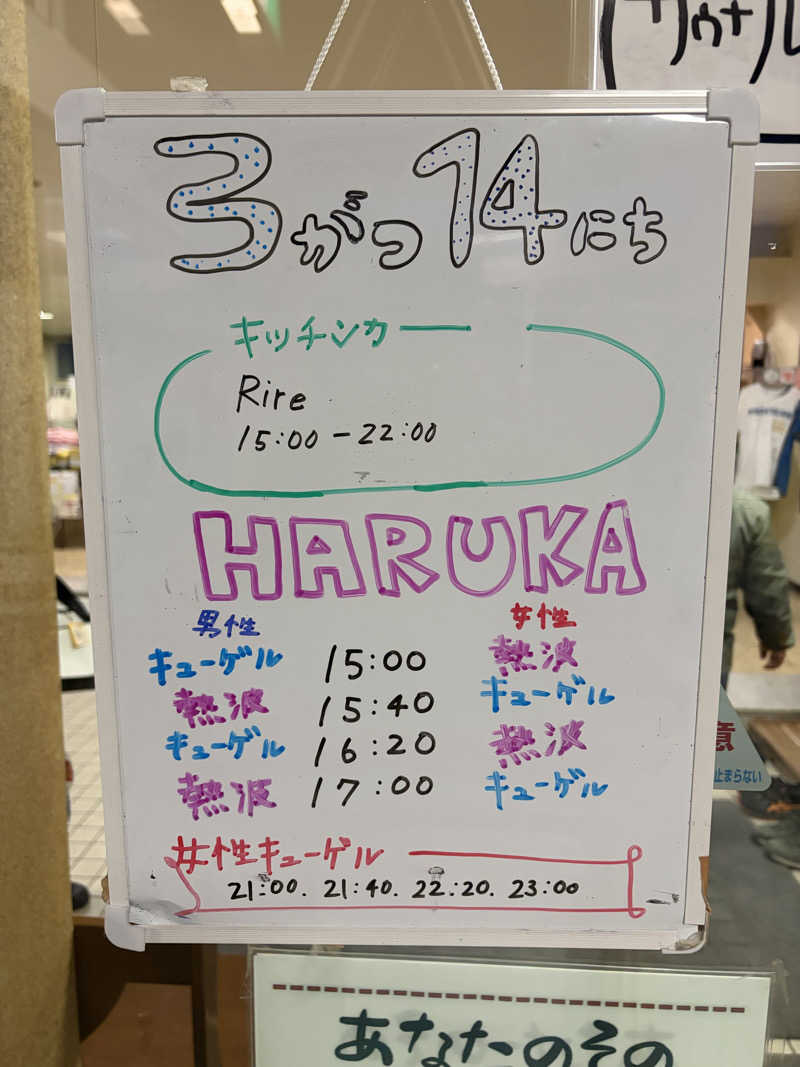 サウナル
3がつ14にち
キッチンカー
Rire
15:00-22:00
HARUKA
男性 女性
キューゲル 15:00 熱波
熱波 15:40 キューゲル
キューゲル 16:20 熱波
熱波 17:00 キューゲル
女性キューゲル
21:00. 21:40. 22:20. 23:00
意
止まらない
あなたのその